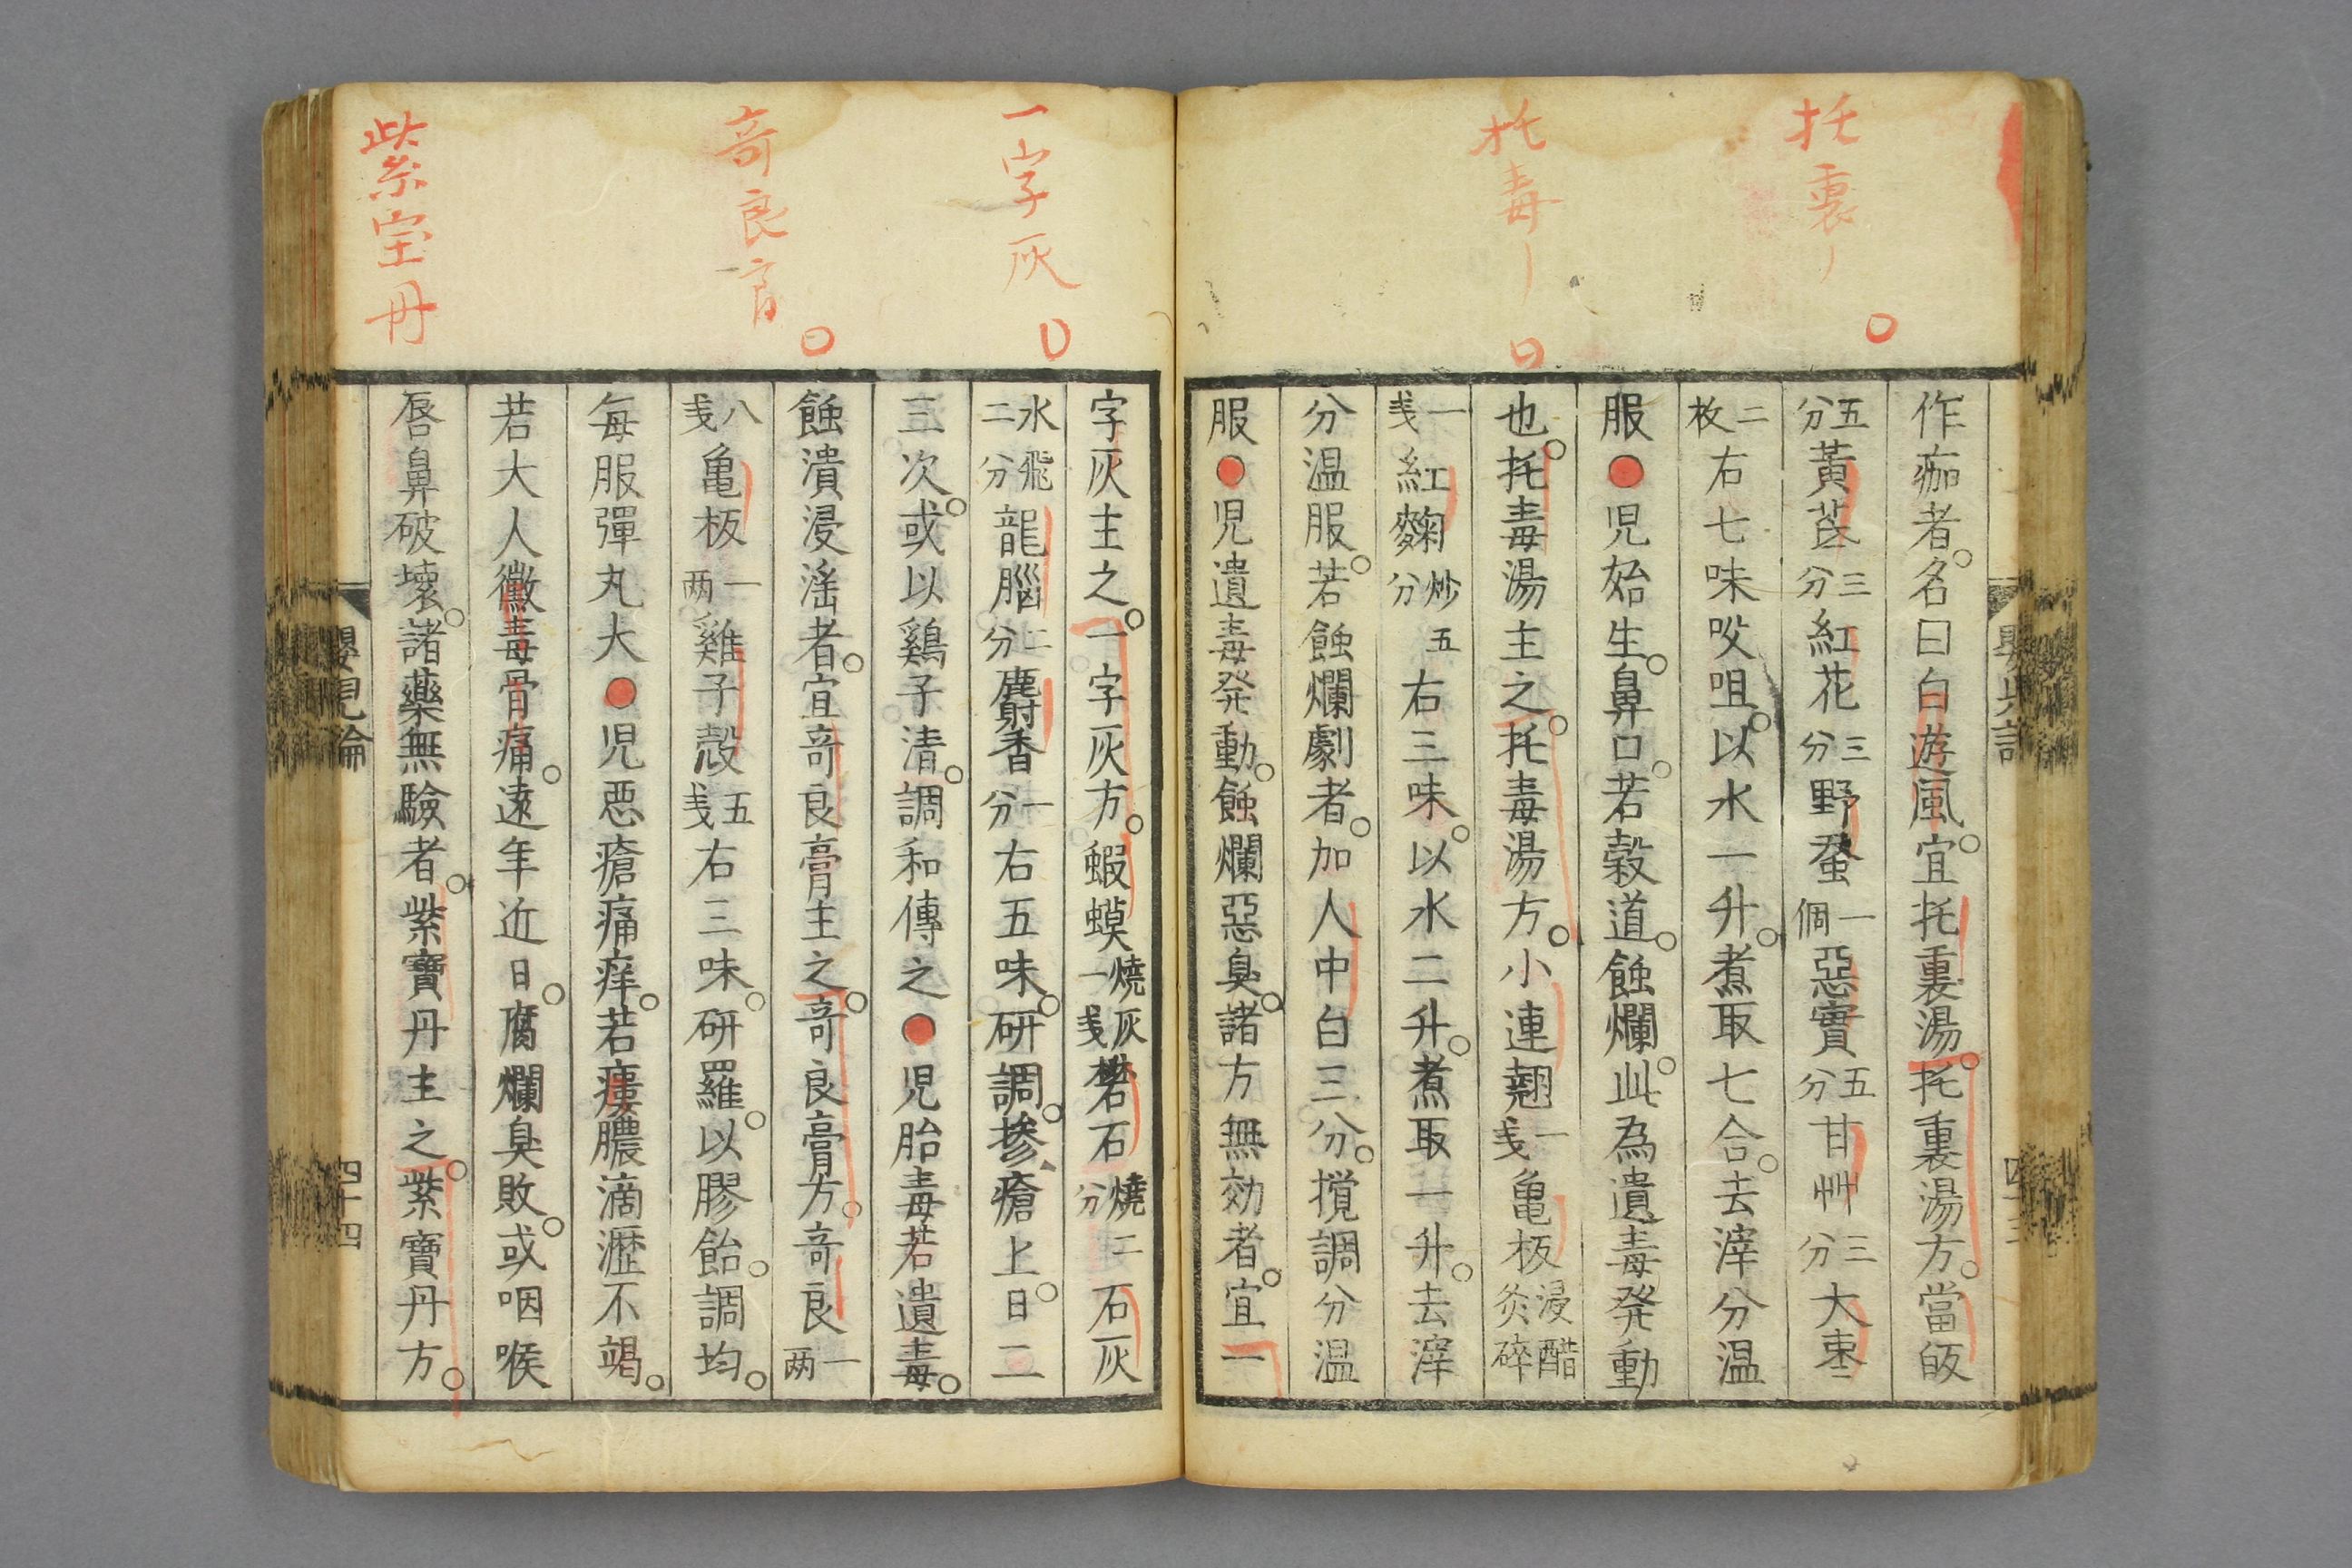 托裏丶
托毒丶
作痂者。名曰白遊風。宜托裏湯。托裏湯方。當皈
五分黃芪三分紅花三分野蚕一個惡實五分甘艸三分大棗
二枚右七味㕮咀。以水一升。煮取七合。去滓分温
服●児始生。鼻口。若穀道。蝕爛。此為遺毒発動
也。托毒湯主之。托毒湯方。小連翹一戔亀板浸醋炙碎
一戔紅麴炒五分右三味。以水二升。煮取一升。去滓
分温服。若蝕爛劇者。加人中白三分。攪調分温
服●児遺毒発動。蝕爛惡臭。諸方無効者。宜一
一字灰
奇良膏
紫宝丹
字灰主之。一字灰方。蝦蟆燒灰一戔礬石燒二分石灰
水飛二分龍腦二分麝香一分右五味。研調。摻瘡上。日二
三次。或以鷄子清。調和傳之●児胎毒若遺毒。
蝕潰浸淫者。宜奇良膏主之。奇良膏方。奇良一两
八戔亀板一两雞子殼五戔右三味。研羅。以膠飴。調均。
每服彈丸大●児惡瘡痛痒。若瘻膿滴瀝不竭。
若大人黴毒骨痛。遠年近日。腐爛臭敗。或咽喉
唇鼻破壞。諸藥無驗者。紫寶丹主之。紫寶丹方。
嬰児論
四十四